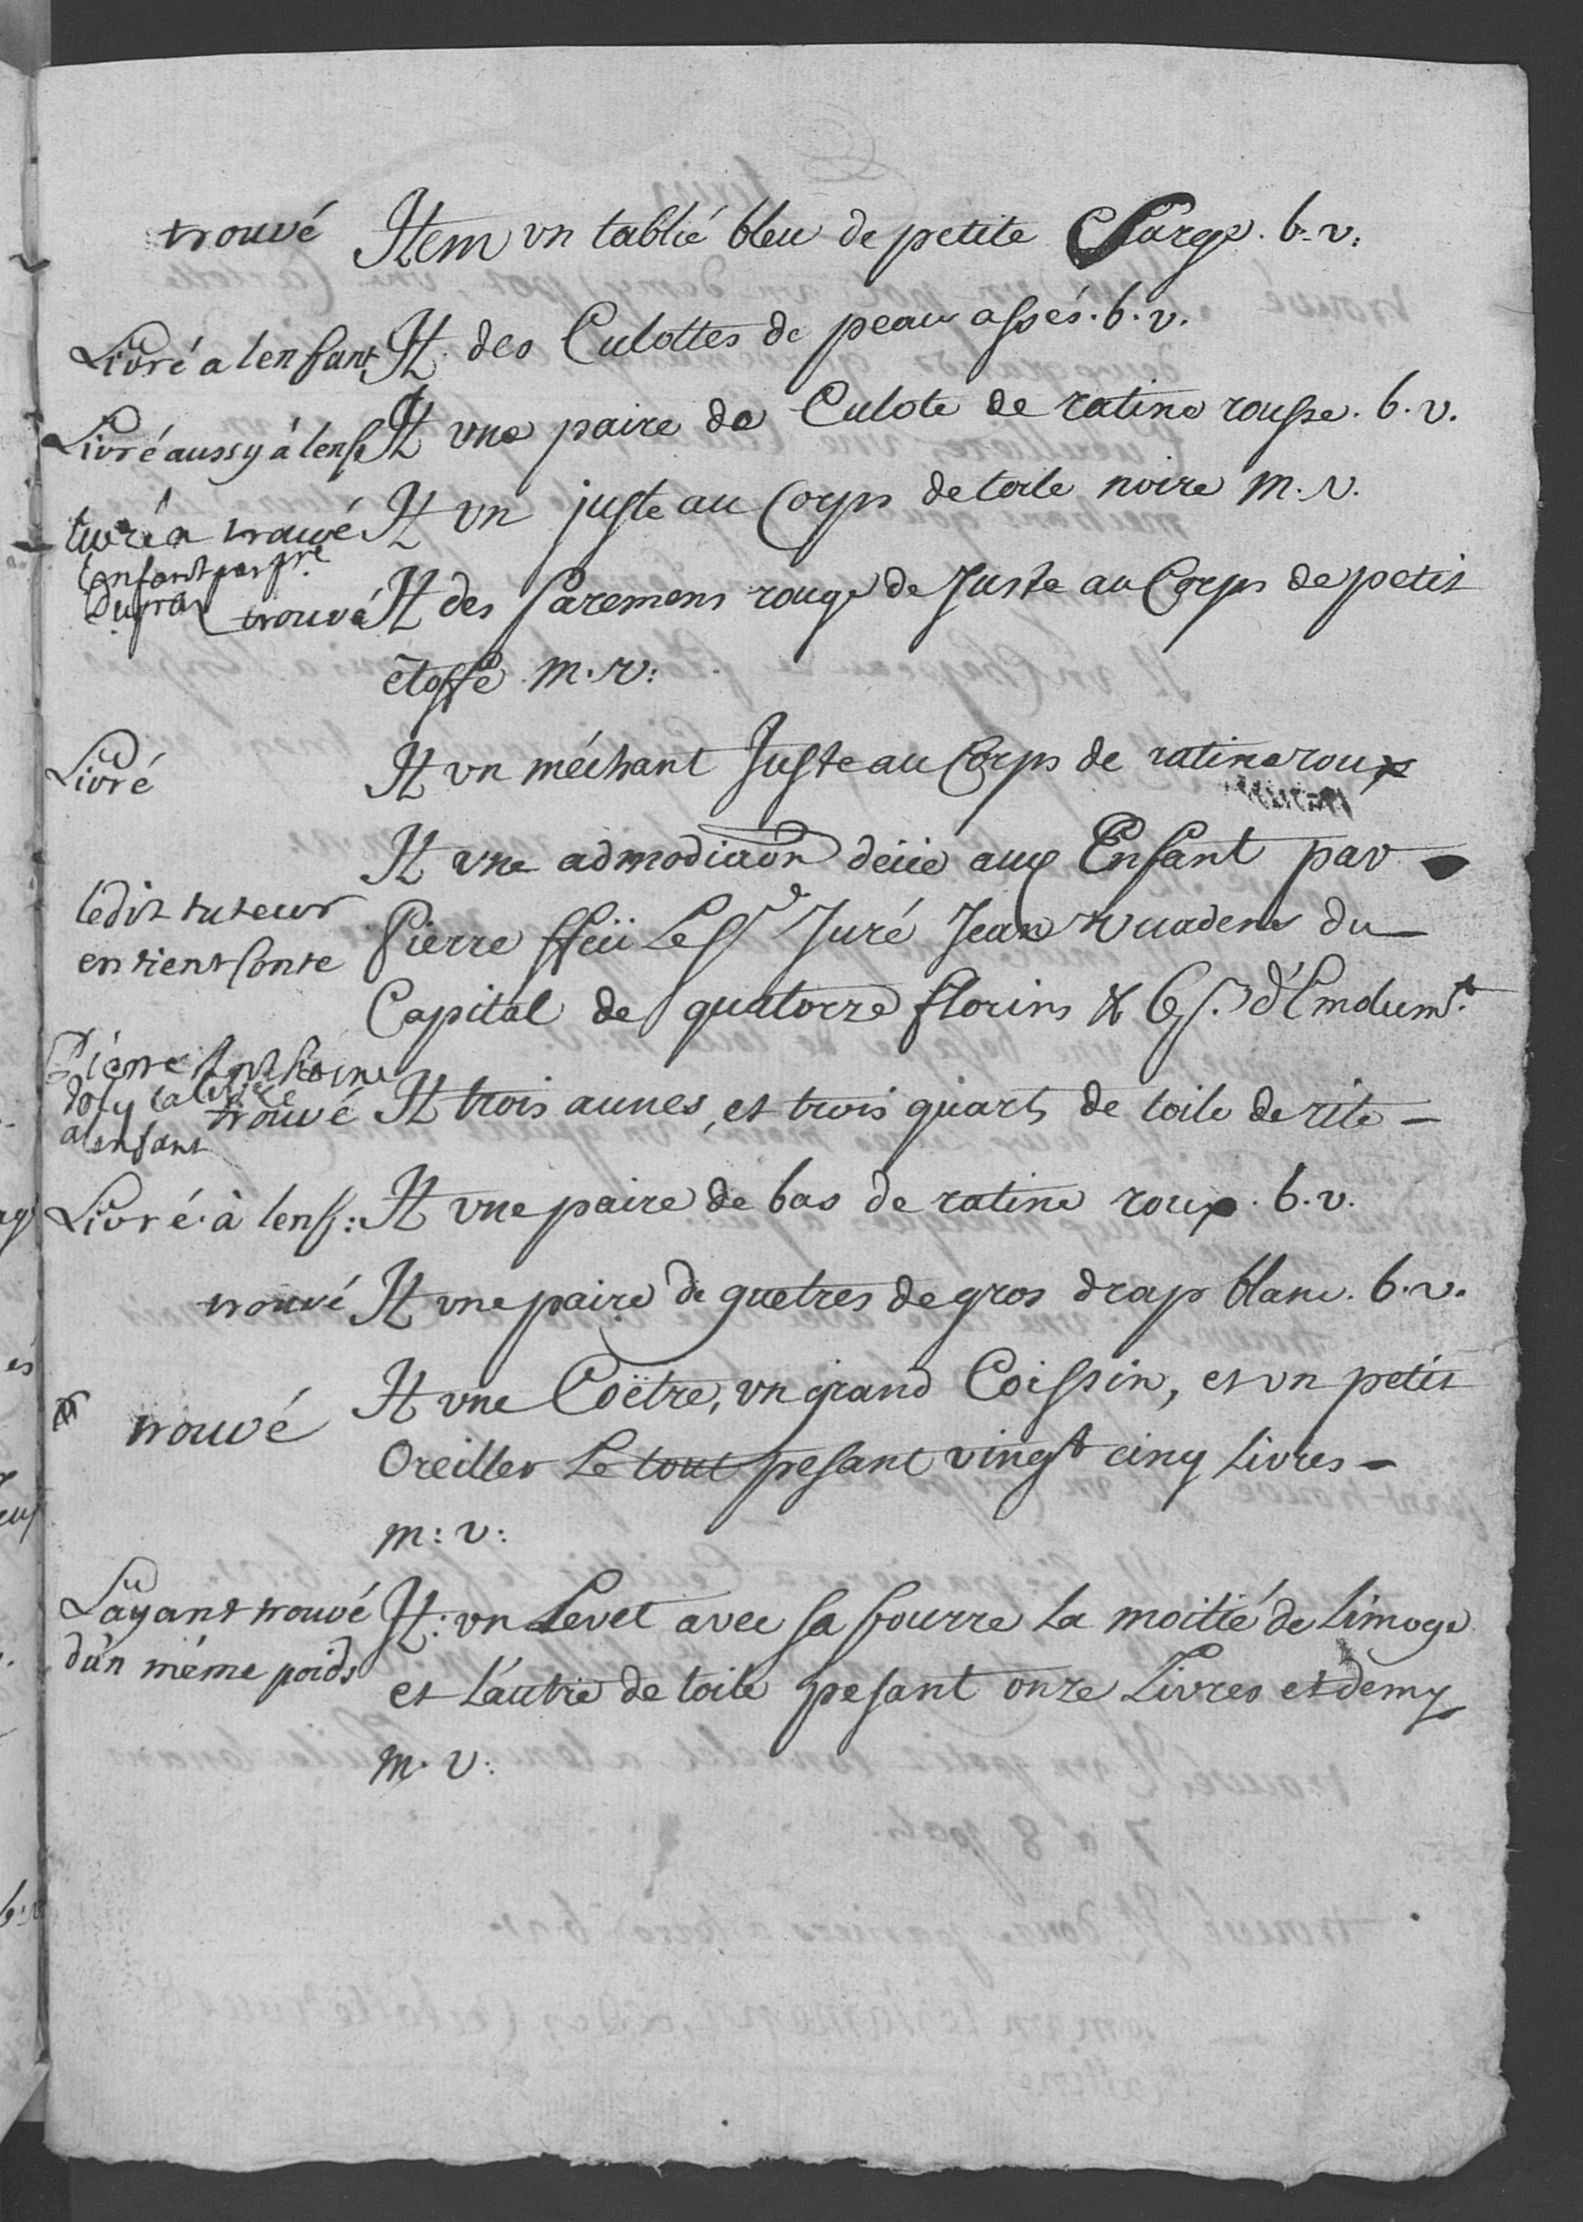 trouvé Item vn tablié bleu de petite Sarge. b. v:
Livré a lenfant It. des Culottes de peau assés. b. v.
Livré aussy à lenf It vne paire de Culote de ratine rousse. b. v.
Livré a trouvé It vn juste au Corps de toile noire m. v.
Lenfant par pre
Dupra trouvé It des Paremens rouge de Juste au Corps de petit
étoffe m. v:
Livré It vn méchant Juste au Corps de ratine roux
It vne admodiaon deüe aux Enfant par
ledit tuteur Pierre ffeü Le Sr Juré Jean Vuadens du
en tient Conte
Capital de quatorze florins & 6 s. d'Emolumt.
Pierre Anthoine
trouvé It trois aunes, et trois quarts de toile de rite -
a lenfant
Livré à lenf: It vne paire de bas de ratine roux. b. v.
trouvé It vne paire de guetres de gros drap blanc. b. v.
It vne Coëtre, vn grand Coissin, et vn petit
trouvé
Oreiller Le tout pesant vingt cinq Livres -
m: v:
Layant trouvé It: vn Levet avec sa fourre La moitié de Limoge
d'un méme poids et L'autre de toile pesant onze Livres et demy
m. v: